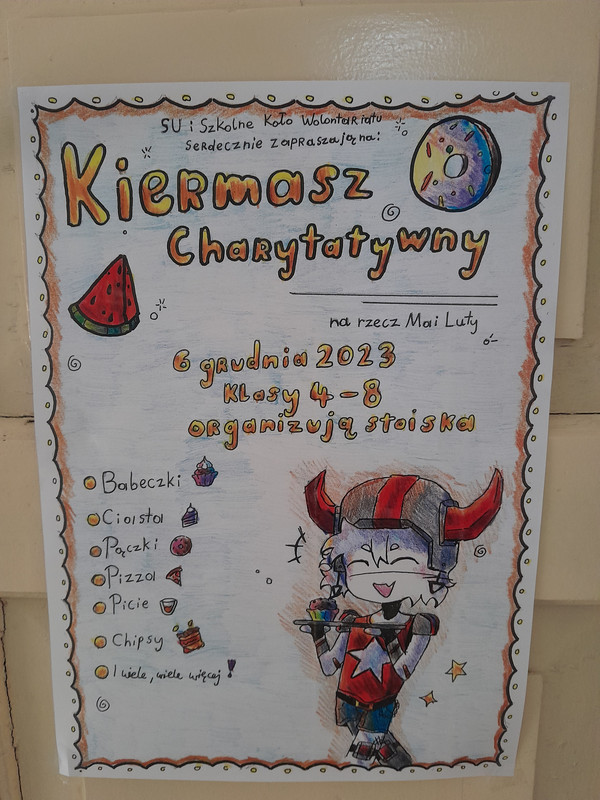 SU i Szkolne Koło Wolontariatu
serdecznie zapraszają na:
Kiermasz
Charytatywny
na rzecz Mai Luty
6 grudnia 2023
Klasy 4-8
organizują stoiska
Babeczki
Ciasta
Pączki
Pizza
Picie
Chipsy
I wiele, wiele więcej!